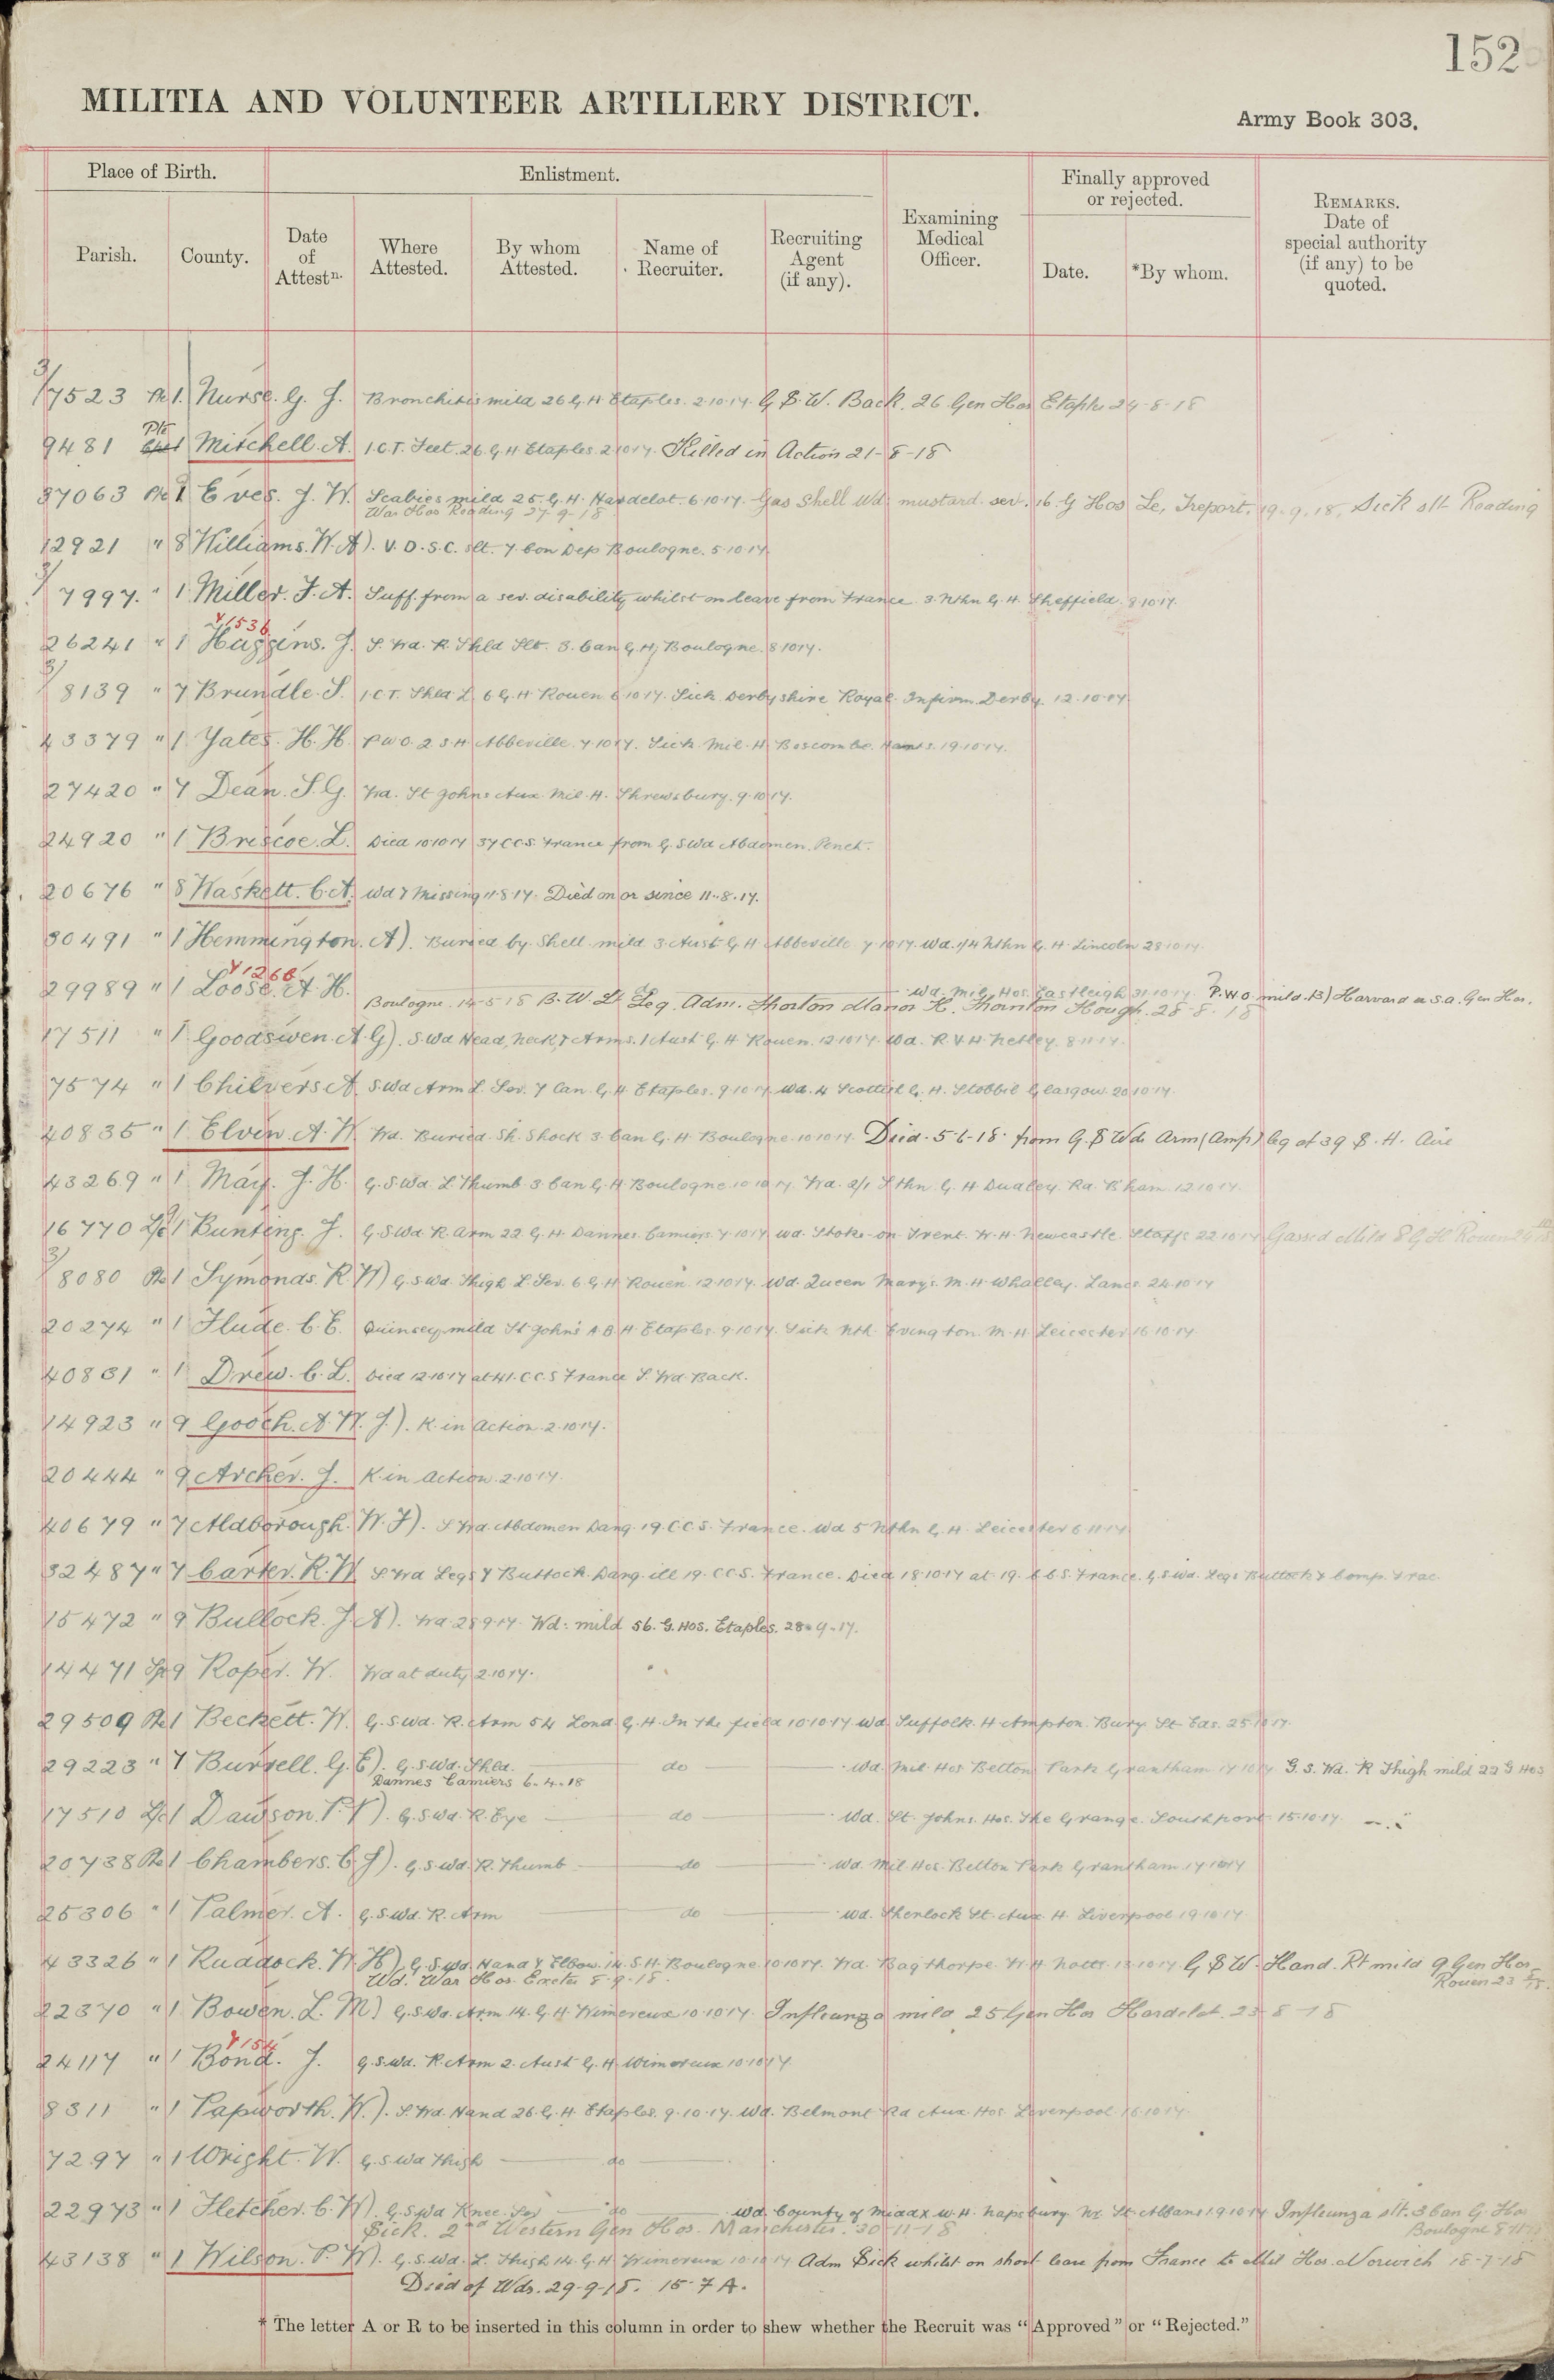 152
MILITIA AND VOLUNTEER ARTILLERY DISTRICT.
Army Book 303.
Place of Birth.
Enlistment.
Examining Medical Officer.
Finally approved or rejected.
REMARKS. Date of special authority (if any) to be quoted.
Parish.
County.
Date of Attestn.
Where Attested.
By whom Attested.
Name of Recruiter.
Recruiting Agent (if any).
Date.
*By whom.
3/7523 Pte 1. Nurse. G. J. Bronchitis mild 26 G. H Etaples. 2.10.17. G S. W. Back. 26 Gen Hos Etaples 24-8-18
Pte
9481 1 Mitchell. A. I.C.T. Feet. 26 G. H Etaples 2.10.17. Killed in Action 21-8-18
37063 Pte 1 Eves. J. W. Scabies mild 25. G. H. Hardelot. 6.10.17. Gas Shell Wd: mustard. sev. 16. G Hos Le, Treport. 19.9.18. Sick slt Reading
War Hos Reading 27-9-18
12921 " 8 Williams. W. A). V.D.S.C. slt. 7 Con Dep Boulogne. 5.10.17.
3/7997. " 1 Miller. F. A. Suff. from a sev. disability whilst on leave from France. 3. Nthn G. H. Sheffield. 8.10.17.
Y1536
26241 " 1 Huggins. J. S. Wd. R. Shld Slt. 3. Can G. H, Boulogne. 8.10.17.
3/8139 " 7 Brundle. S. I.C.T. Shld L. 6 G. H Rouen 6.10.17. Sick Derbyshire Royal. Infirm. Derby. 12.10.17.
43379 " 1 Yates. H. H. P U O. 2 S. H Abbeville. 7.10.17. Sick. Mil. H. Boscombe. Hants. 19.10.17.
27420 " 7 Dean. S. G. Wd. St Johns Aux Mil. H. Shrewsbury. 9.10.17.
24920 " 1 Briscoe. L. Died 10.10.17 37 C C S. France from G. S Wd Abdomen. Penet.
20676 " 8 Haskett. C. A. Wd & Missing 11.8.17. Died on or since 11-8-17.
30491 " 1 Hemmington. A). Buried by. Shell. mild 3 Aust G. H Abbeville 7.10.17. Wd. 1/4 Nthn G. H. Lincoln 28.10.17.
Y1266
29989 " 1 Loose. A. H. do Wd. Mil. Hos. Eastleigh 31.10.17. P.U O mild. 13) Harvard U.S.A. Gen Hos.
Boulogne. 14-5-18 B. W. Lt Leg. Adm. Thorton Manor H. Thornton Hough. 28-8-18
17511 " 1. Goodswen. A. G). S. Wd Head, Neck, & Arms. 1 Aust G. H Rouen. 12.10.17. Wd. R. V. H. Netley. 8.11.17.
7574 " 1 Chilvers A. S. Wd Arm L. Sev. 7 Can. G. H Etaples. 9.10.17. Wd. 4 Scottish G. H. Stobhill Glasgow. 20.10.17.
40835 " 1. Elvin. A. W. Wd. Buried. Sh. Shock 3. Can G. H. Boulogne. 10.10.17. Died. 5-6-18. from G. S Wds Arm (Amp) leg at 39 S. H. Aire
43269 " 1 May. J. H. G. S. Wd. L Thumb. 3. Can G. H Boulogne. 10.10.17. Wd. 2/1 Sthn. G. H Dudley. Rd. B'ham. 12.10.17.
16770 L/C 1 Bunting. J. G. S Wd. R. Arm 22. G. H. Dannes. Camiers. 7.10.17. Wd. Stoke-on Trent. W. H. Newcastle. Staffs 22.10.17. Gassed Mild 8 G H Rouen
3/8080 Pte 1 Symonds. R. W) G. S Wd. Thigh L. Sev. 6. G. H Rouen. 12.10.17. Wd. Queen Mary's. M. H. Whalley. Lancs. 24.10.17
20274 " 1 Flude. C. E. Quinsey mild St John's A. B. H Etaples. 9.10.17. Sick Nth. Evington. M. H Leicester 16.10.17.
40831 " 1 Drew. C. L. Died 12.10.17 at 41. C C S France S. Wd. Back.
14923 " 9 Gooch. A. W. J). K. in Action. 2.10.17.
20444 " 9 Archer. J. K. in Action. 2.10.17.
40679 " 7 Aldborough. W. F). S Wd. Abdomen Dang. 19. C C S. France. Wd 5 Nthn G. H. Leicester 6.11.17
32487 " 7 Carter. R. W S Wd Legs & Buttock. Dang. ill 19. C C S. France. Died 18.10.17 at 19. C C S. France. G. S. Wd. Legs Buttock & Comp. Frac.
15472 " 9 Bullock. J. A). Wd 28.9.17. Wd: mild 56. G. Hos. Etaples. 28-9-17.
14471 9 Roper. W. Wd at duty 2.10.17.
29509 Pte 1 Beckett. W. G. S Wd. R. Arm 54 Lond. G. H. In the field 10.10.17 Wd. Suffolk. H Ampton. Bury. St. Eds. 25.10.17.
29223 " 7 Burrell. G. E). G. S Wd. Shld. do Wd. Mil. Hos Belton Park Grantham 17.10.17. G. S. Wd. R Thigh mild 22 G Hos
Dannes Camiers 6.4.18
17510 L/C 1 Dawson. P. V). G. S Wd. R. Eye do Wd. St. Johns. Hos. The Grange. Southport. 15.10.17.
20738 Pte 1 Chambers. C. J). G. S Wd. R. Thumb do Wd. Mil Hos. Belton Park Grantham. 17.10.17
25306 " 1 Palmer. A. G. S. Wd. R. Arm do Wd. Sherlock St. Aux. H. Liverpool 19.10.17
43326 " 1 Ruddock. W. H) G. S. Wd. Hand & Elbow. 14. S. H. Boulogne. 10.10.17. Wd. Bagthorpe. W. H Notts. 13.10.17 G S W. Hand. Rt mild 9 Gen Hos
Wd. War Hos. Exeter 5-9-18. Rouen 23
22370 " 1 Bowen. L. M) G. S. Wd. Arm 14. G. H. Wimereux 10.10.17. Influenza mild 25 Gen Hos Hardelot. 23-8-18
24117 " 1 Bond. J. G. S. Wd. R. Arm 2. Aust G. H. Wimereux 10.10.17
8311 " 1 Papworth. W.). S. Wd. Hand 26. G. H Etaples. 9.10.17. Wd. Belmont Rd Aux. Hos. Liverpool 16.10.17
7297 " 1 Wright. W. G. S Wd Thigh do
22973 " 1 Fletcher. C. W). G. S Wd Knee. Sev do Wd. County of Middx W. H. Napsbury. Nr. St. Albans 19.10.17 Influenza slt. 3 Can G. Hos
Sick. 2nd Western Gen Hos. Manchester. 30-11-18 Boulogne
43138 " 1 Wilson. P. W). G. S. Wd. L. Thigh 14. G. H Wimereux 10.10.17 Adm Sick whilst on short leave from France to Mil Hos. Norwich 18-7-18
Died of Wds. 29-9-18. 15-7 A.
* The letter A or R to be inserted in this column in order to shew whether the Recruit was “Approved” or “Rejected.”